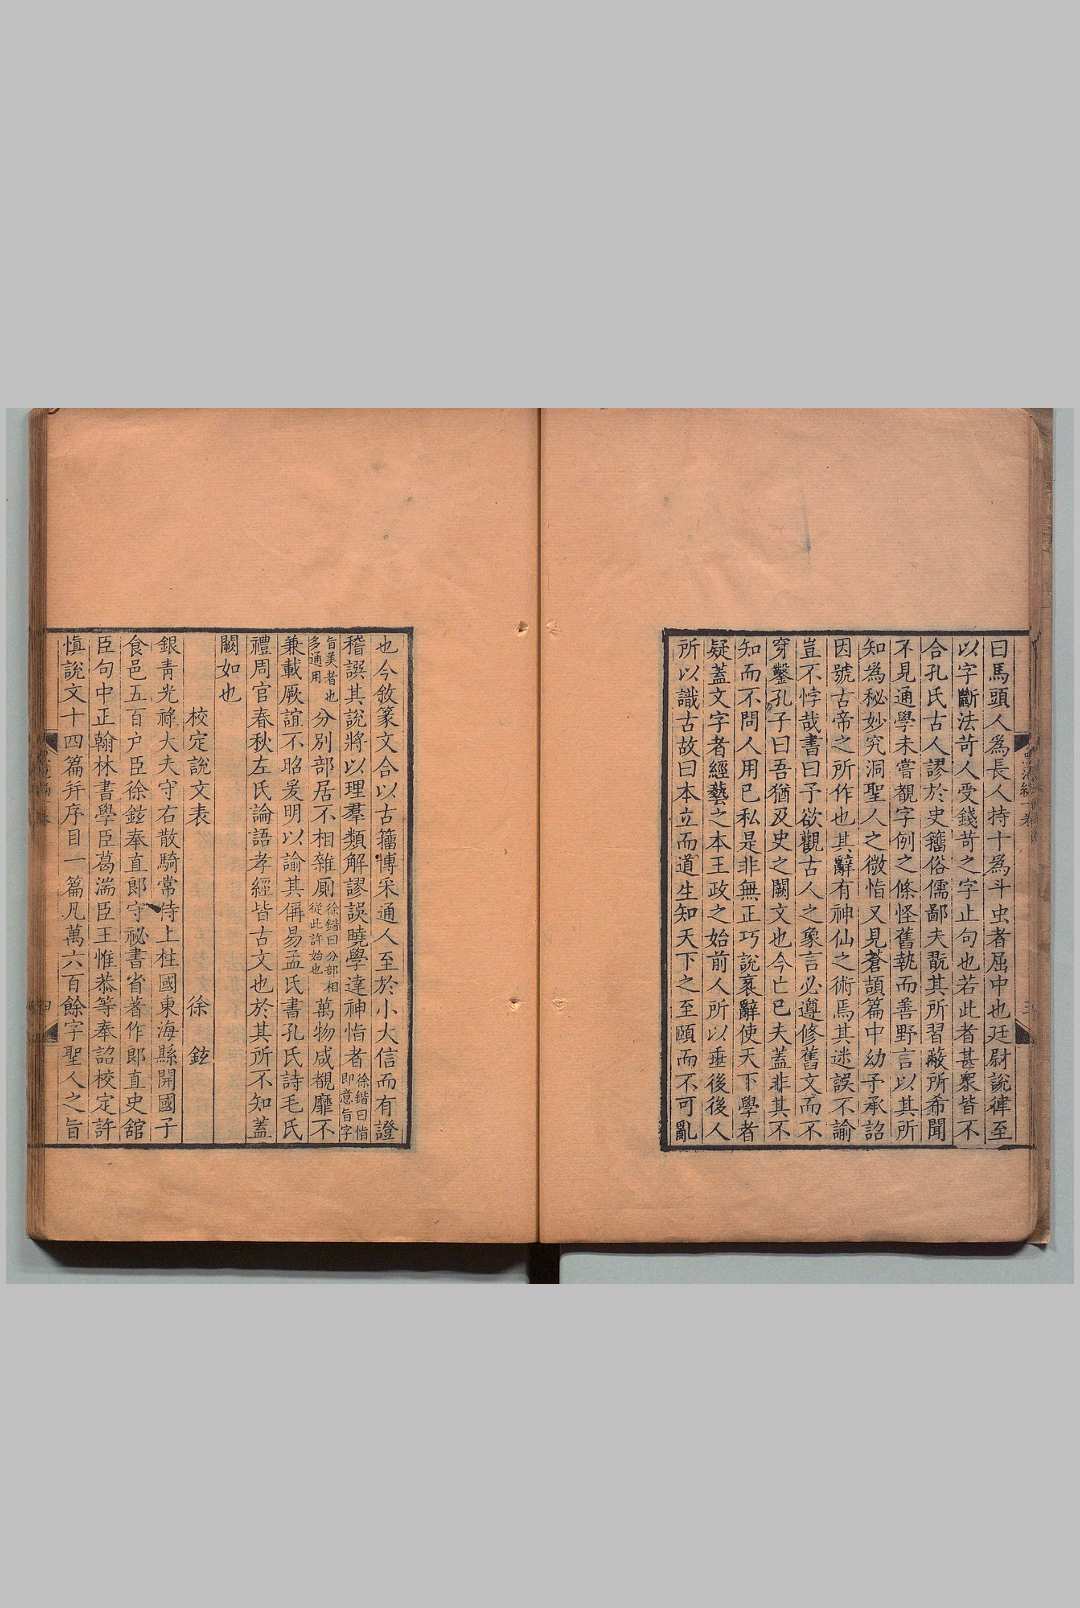 曰馬頭人爲長人持十爲斗虫者屈中也廷尉說律至
以字斷法苛人受錢苛之字止句也若此者甚衆皆不
合孔氏古人謬於史籀俗儒鄙夫翫其所習蔽所希聞
不見通學未嘗覩字例之條怪舊埶而善野言以其所
知爲秘妙究洞聖人之微恉又見蒼頡篇中幼子承詔
因號古帝之所作也其辭有神仙之術焉其迷誤不諭
豈不悖哉書曰予欲觀古人之象言必遵修舊文而不
穿鑿孔子曰吾猶及史之闕文也今亡已夫蓋非其不
知而不問人用己私是非無正巧說衺辭使天下學者
疑蓋文字者經藝之本王政之始前人所以垂後後人
所以識古故曰本立而道生知天下之至賾而不可亂
也今敘篆文合以古籀博采通人至於小大信而有證
稽譔其說將以理羣類解謬誤曉學達神恉者徐鍇曰恉即意旨字
旨美者也多通用分別部居不相雜廁徐鍇曰分部相從此許始也萬物咸覩靡不
兼載厥誼不昭爰明以諭其偁易孟氏書孔氏詩毛氏
禮周官春秋左氏論語孝經皆古文也於其所不知蓋
闕如也
校定說文表 徐鉉
銀青光祿大夫守右散騎常侍上柱國東海縣開國子
食邑五百户臣徐鉉奉直郎守祕書省著作郎直史舘
臣句中正翰林書學臣葛湍臣王惟恭等奉詔校定許
慎說文十四篇并序目一篇凡萬六百餘字聖人之旨